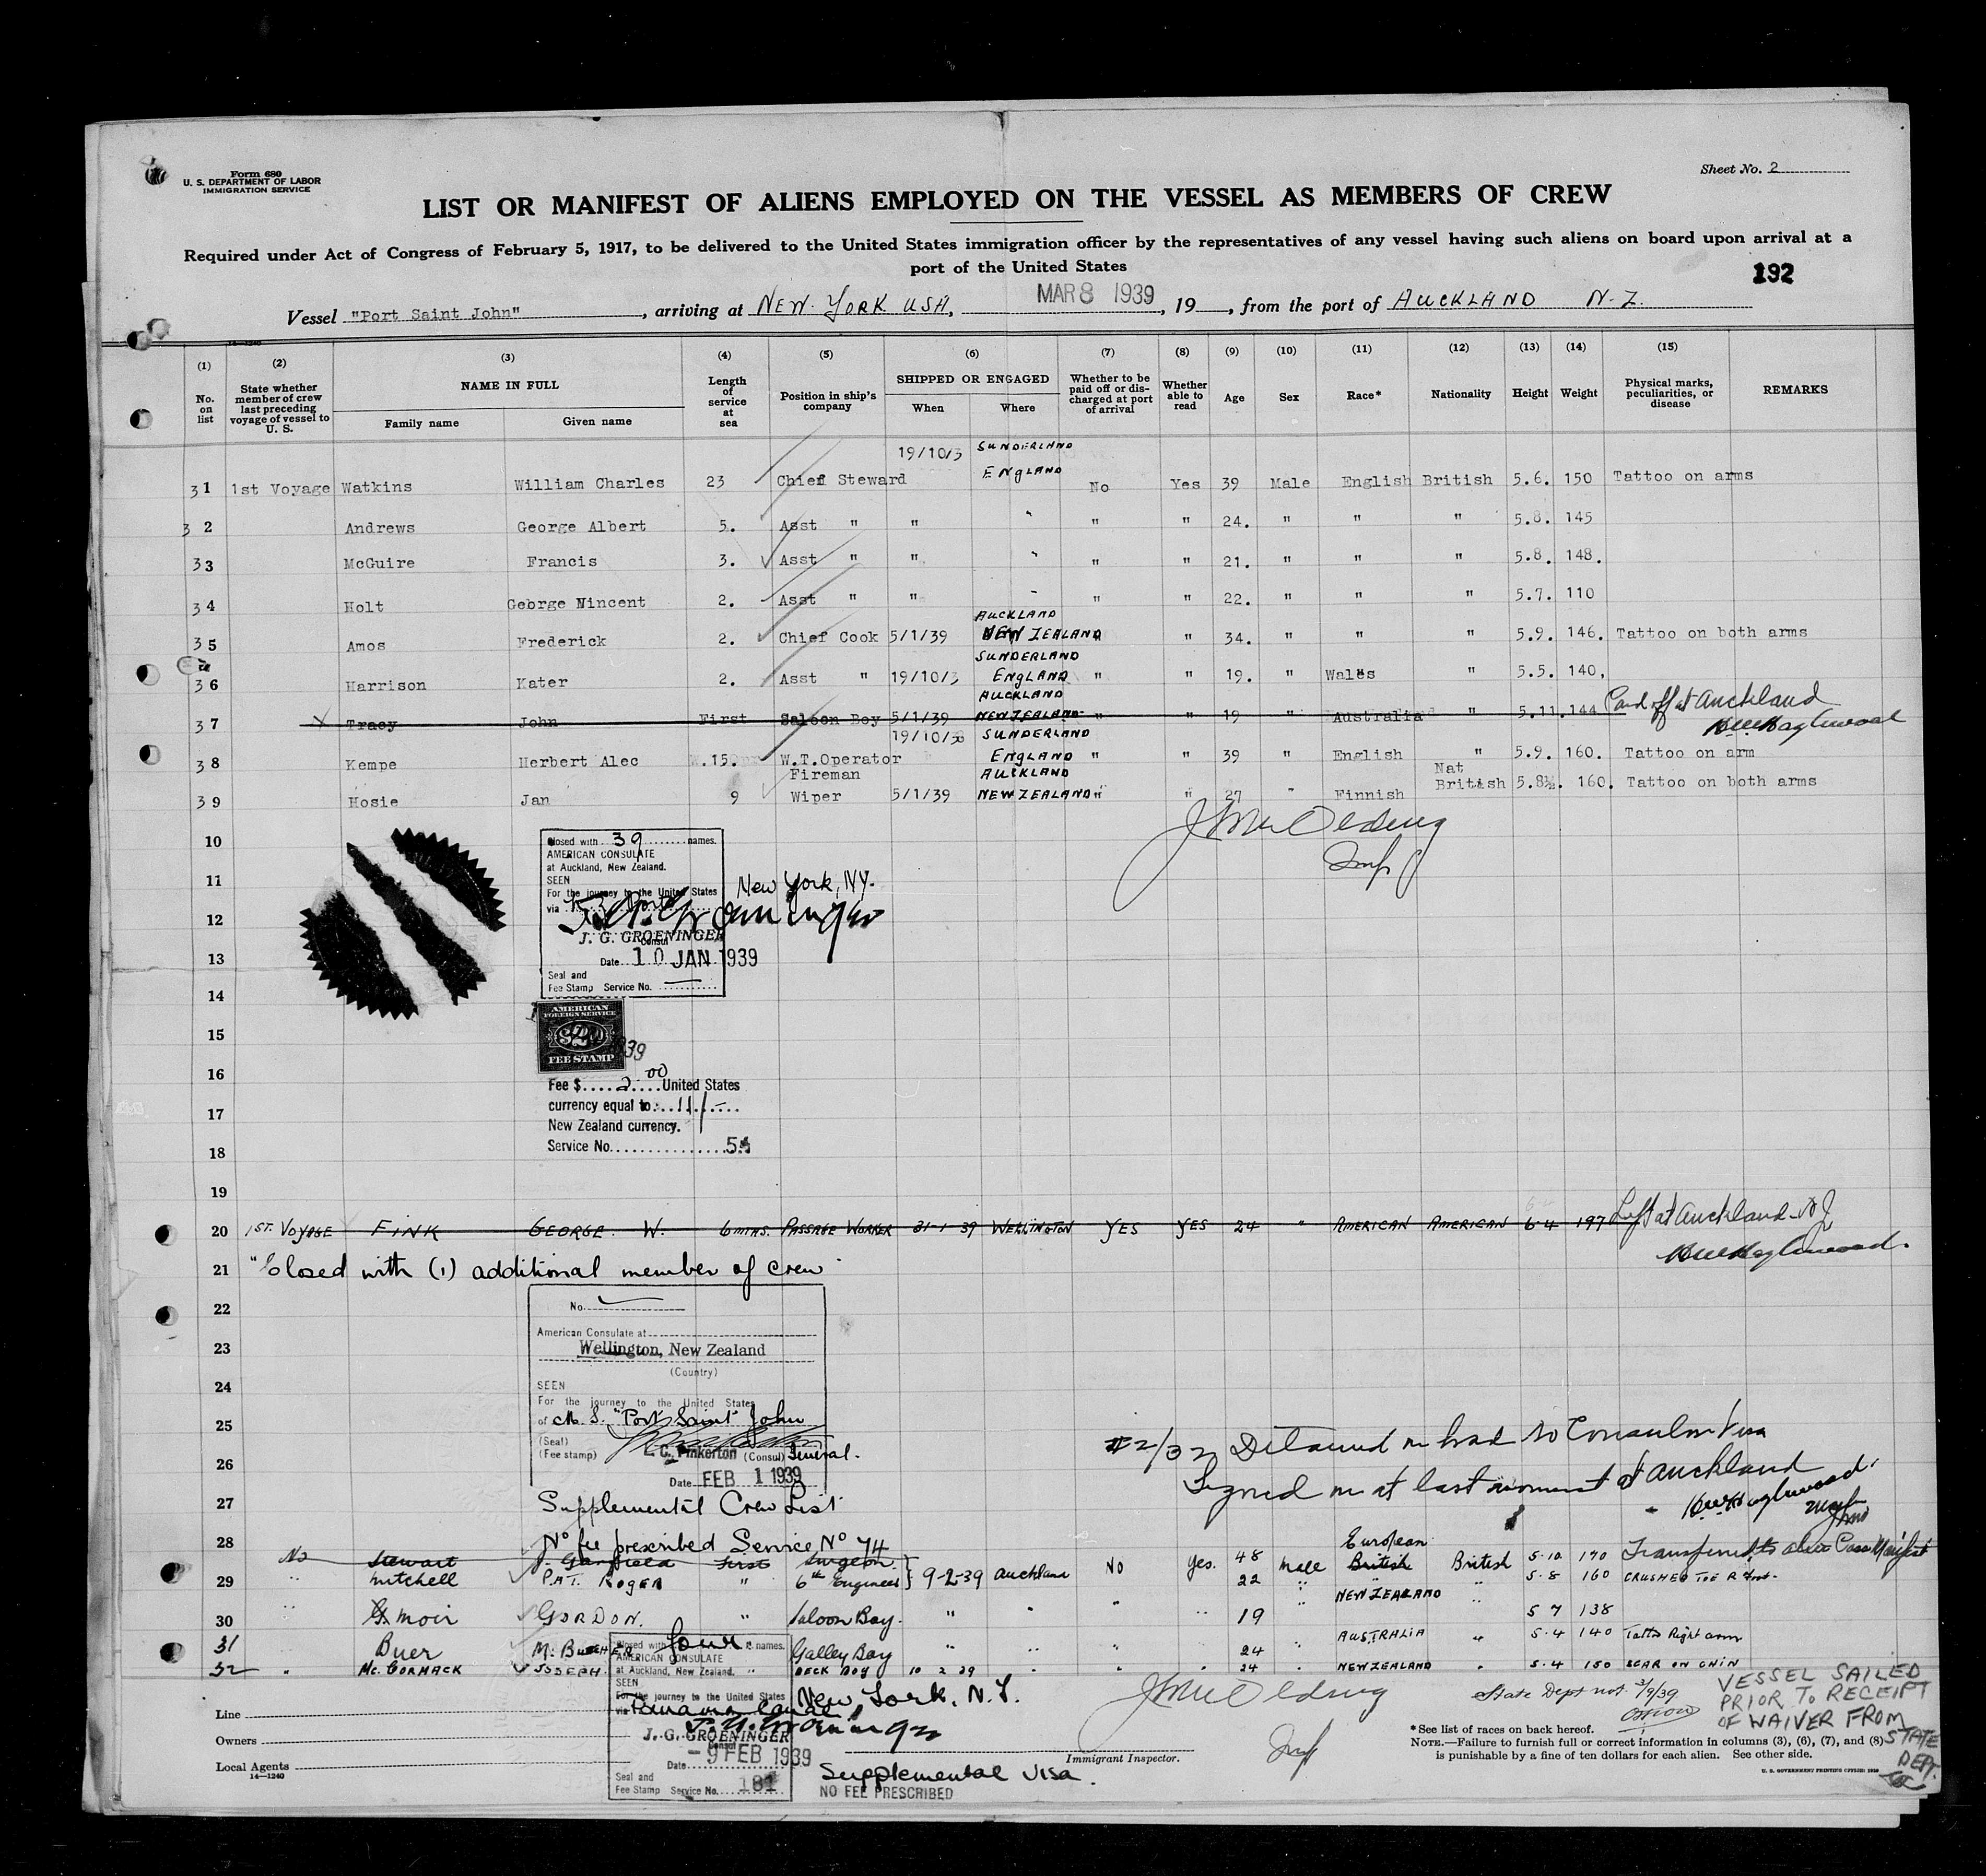 Form 680
U. S. DEPARTMENT OF LABOR
IMMIGRATION SERVICE
Sheet No. 2
LIST OR MANIFEST OF ALIENS EMPLOYED ON THE VESSEL AS MEMBERS OF CREW
Required under Act of Congress of February 5, 1917, to be delivered to the United States immigration officer by the representatives of any vessel having such aliens on board upon arrival at a
port of the United States
192
Vessel "Port Saint John", arriving at NEW YORK USA, MAR 8 1939, 19, from the port of AUCKLAND N.Z.
(1) (2) (3) (4) (5) (6) (7) (8) (9) (10) (11) (12) (13) (14) (15)
No. on list State whether member of crew last preceding voyage of vessel to U. S. NAME IN FULL Family name Given name Length of service at sea Position in ship's company SHIPPED OR ENGAGED When Where Whether to be paid off or discharged at port of arrival Whether able to read Age Sex Race* Nationality Height Weight Physical marks, peculiarities, or disease REMARKS
19/10/3 SUNDERLAND
31 1st Voyage Watkins William Charles 23 Chief Steward ENGLAND No Yes 39 Male English British 5.6. 150 Tattoo on arms
32 Andrews George Albert 5. Asst " " " " " 24. " " " 5.8. 145
33 McGuire Francis 3. Asst " " " " " 21. " " " 5.8. 148.
34 Holt George Vincent 2. Asst " " " " " 22. " " " 5.7. 110
AUCKLAND
35 Amos Frederick 2. Chief Cook 5/1/39 NEW ZEALAND " " 34. " " " 5.9. 146. Tattoo on both arms
SUNDERLAND
36 Harrison Kater 2. Asst " 19/10/3 ENGLAND " " 19. " Wales " 5.5. 140,
AUCKLAND
37 Tracy John First Saloon Boy 5/1/39 NEW ZEALAND " " 19 " Australia " 5.11. 144 Paid off at Auckland
19/10/38 SUNDERLAND
38 Kempe Herbert Alec 15 W.T.Operator ENGLAND " " 39 " English " 5.9. 160. Tattoo on arm
Fireman AUCKLAND Nat
39 Hosie Jan 9 Wiper 5/1/39 NEW ZEALAND " " 27 " Finnish British 5.8½. 160. Tattoo on both arms
10
Closed with 39 names.
AMERICAN CONSULATE
at Auckland, New Zealand.
SEEN
11
For the journey to the United States New York, N.Y.
via
12
J. G. GROENINGER
Consul
13
Date 10 JAN 1939
Seal and
Fee Stamp Service No.
14
AMERICAN
FOREIGN SERVICE
$2
FEE STAMP
15
16
Fee $ 2 00 United States
currency equal to 11/-
17
New Zealand currency.
Service No.
18
19
20 1ST. VOYAGE FINK GEORGE. W. 6 MTHS. PASSAGE WORKER 31-1-39 WELLINGTON YES YES 24 " AMERICAN AMERICAN 6.4 197 Left at Auckland
21 "Closed with (1) additional member of crew"
22
No.
American Consulate at
23
Wellington, New Zealand
(Country)
24
SEEN
For the journey to the United States
25
of M. S. "Port Saint John
(Seal)
(Fee stamp) C. Pinkerton (Consul) General.
#2/32 Detained on board No Consular Visa
26
Date FEB 1 1939
Signed on at last moment at Auckland
27
Supplemental Crew List
28
No fee prescribed Service No 74
European
No Stewart J. Garfield First Surgeon 9-2-39 Auckland No Yes. 48 Male British British 5.10 170 Transferred to alien Pass Manifest
29 " Mitchell PAT. ROGER " 6th Engineer 22 " 5.8 160 CRUSHED TOE R Foot.
NEW ZEALAND
30 " Moir GORDON. " Saloon Boy. " " " " 19 5 7 138
31 Buer M. BUCHER Galley Boy " " " 24 " AUSTRALIA " 5.4 140 Tatto Right arm
32 " Mc. CORMACK JOSEPH. " DECK BOY 10 2 39 " " " 24 " NEW ZEALAND " 5.4 150 SCAR ON CHIN
Closed with four names.
AMERICAN CONSULATE
at Auckland, New Zealand.
SEEN
For the journey to the United States New York, N.Y.
via Panama Canal
J. G. GROENINGER
Consul
Date - 9 FEB 1939
Seal and
Fee Stamp Service No. 181
Supplemental Visa.
NO FEE PRESCRIBED
Line
Owners
Local Agents
14—1240
Immigrant Inspector.
State Dept not. 3/9/39
VESSEL SAILED
PRIOR TO RECEIPT
OF WAIVER FROM
STATE
DEPT.
* See list of races on back hereof.
NOTE.—Failure to furnish full or correct information in columns (3), (6), (7), and (8)
is punishable by a fine of ten dollars for each alien. See other side.